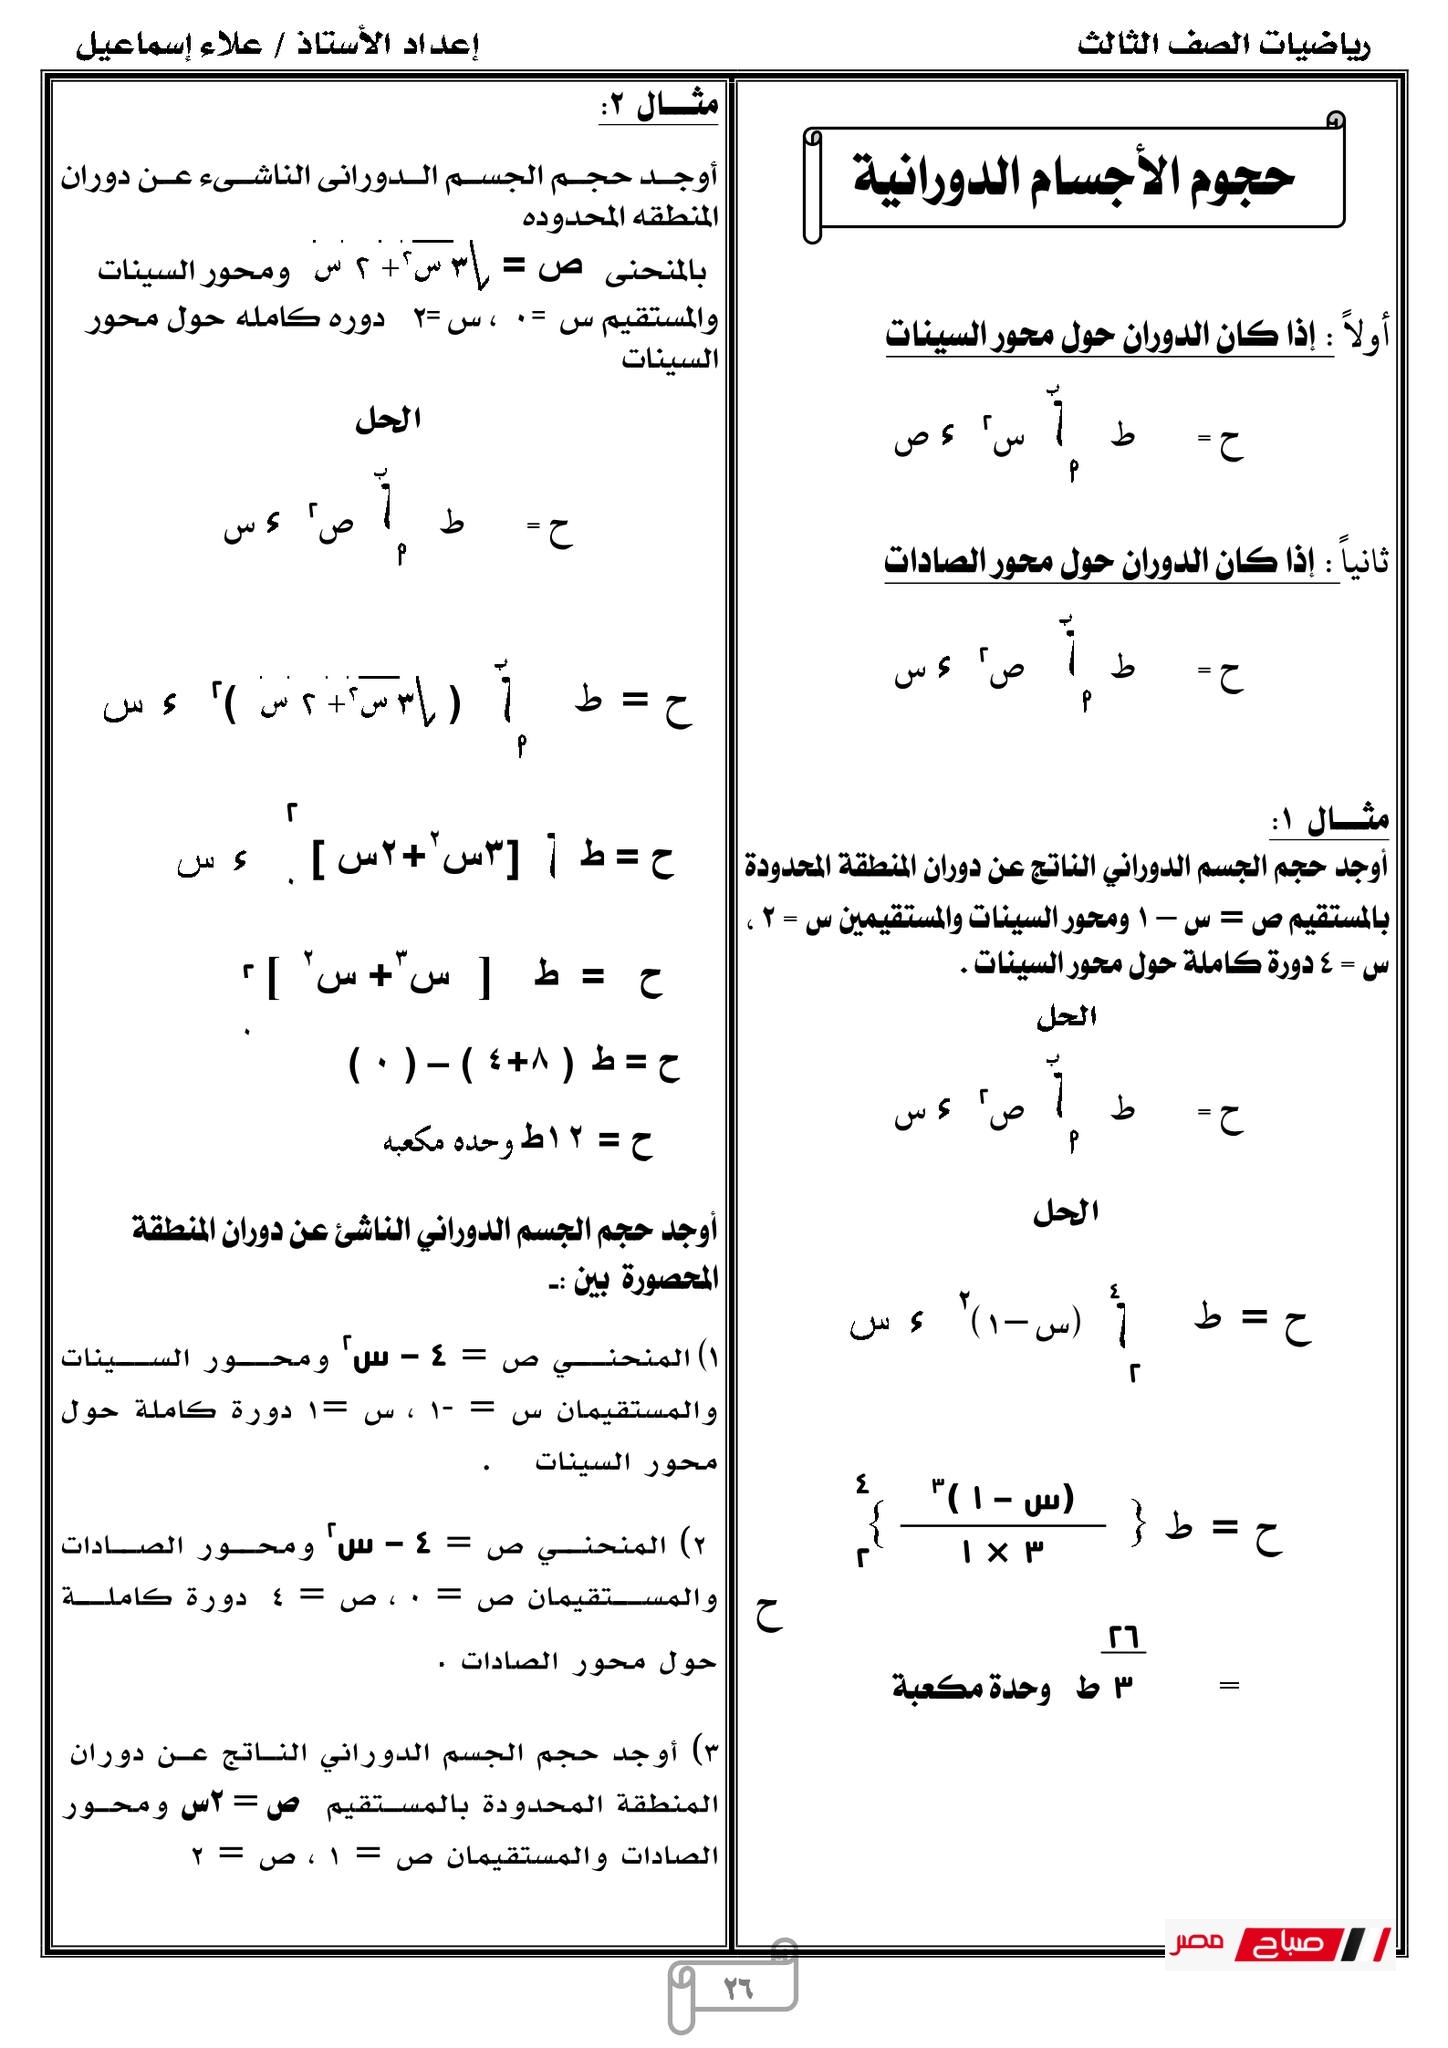 رياضيات الصف الثالث
إعداد الأستاذ / علاء إسماعيل
حجوم الأجسام الدورانية
أولاً : إذا كان الدوران حول محور السينات
ح = ط ب أ م س٢ ء ص
ثانياً : إذا كان الدوران حول محور الصادات
ح = ط ب أ م ص٢ ء س
مثـــال ١:
أوجد حجم الجسم الدوراني الناتج عن دوران المنطقة المحدودة
بالمستقيم ص = س – ١ ومحور السينات والمستقيمين س = ٢ ،
س = ٤ دورة كاملة حول محور السينات .
الحل
ح = ط ب أ م ص٢ ء س
الحل
ح = ط ٤ أ ٢ (س – ١)٢ ء س
ح = ط { (س – ١ )٣ / ٣ × ١ } ٤ ٢
ح
٢٦
= ٣ ط وحدة مكعبة
مثـــال ٢:
أوجــد حجــم الجســم الــدورانى الناشــىء عــن دوران
المنطقه المحدوده
بالمنحنى ص = √٣ س٢+ ٢ س ومحور السينات
والمستقيم س =٠ ، س =٢ دوره كامله حول محور
السينات
الحل
ح = ط ب أ م ص٢ ء س
ح = ط ب أ م ( √٣ س٢+ ٢ س )٢ ء س
ح = ط أ [٣س٢+٢س ] ٢ ٠ ء س
ح = ط [ س٣+ س٢ ] ٢ ٠
ح = ط ( ٨+٤ ) – ( ٠ )
ح = ١٢ط وحده مكعبه
أوجد حجم الجسم الدوراني الناشئ عن دوران المنطقة
المحصورة بين :ـ
١) المنحنـــي ص = ٤ – س٢ ومحـــور الســـينات
والمستقيمان س = -١ ، س =١ دورة كاملة حول
محور السينات .
٢) المنحنــي ص = ٤ – س٢ ومحــور الصــادات
والمســتقيمان ص = ٠ ، ص = ٤ دورة كاملــة
حول محور الصادات .
٣) أوجد حجم الجسم الدوراني النــاتج عــن دوران
المنطقة المحدودة بالمســتقيم ص = ٢س ومحــور
الصادات والمستقيمان ص = ١ ، ص = ٢
صباح مصر
٢٦